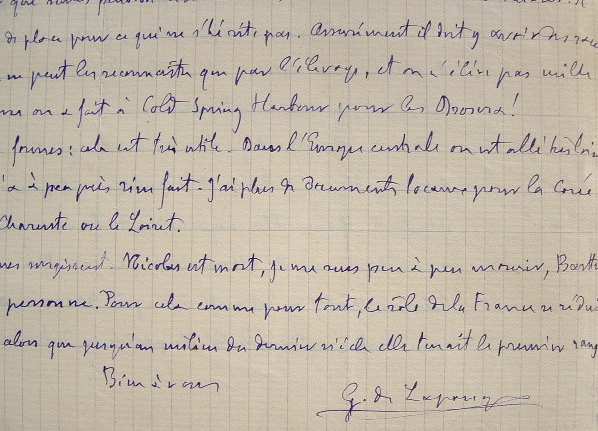 que nous
de place pour ce qui ne s'hérite pas. Assurément il doit y avoir des
ne peut les reconnaître que par l'élevage, et on n'élève pas mille
on a fait à Cold Spring Harbour pour les Drosera!
formes: cela est très utile. Dans l'Europe centrale on est allé très loin
à peu près rien fait. J'ai plus de documents locaux pour la Corée
Charente ou le Loiret.
surgissent. Nicolas est mort, je me sens peu à peu mourir,
personne. Pour cela comme pour tout, le rôle de la France se rédui
alors que jusqu'au milieu du dernier siècle elle tenait le premier rang
Bien à vous
G. de Lapouge